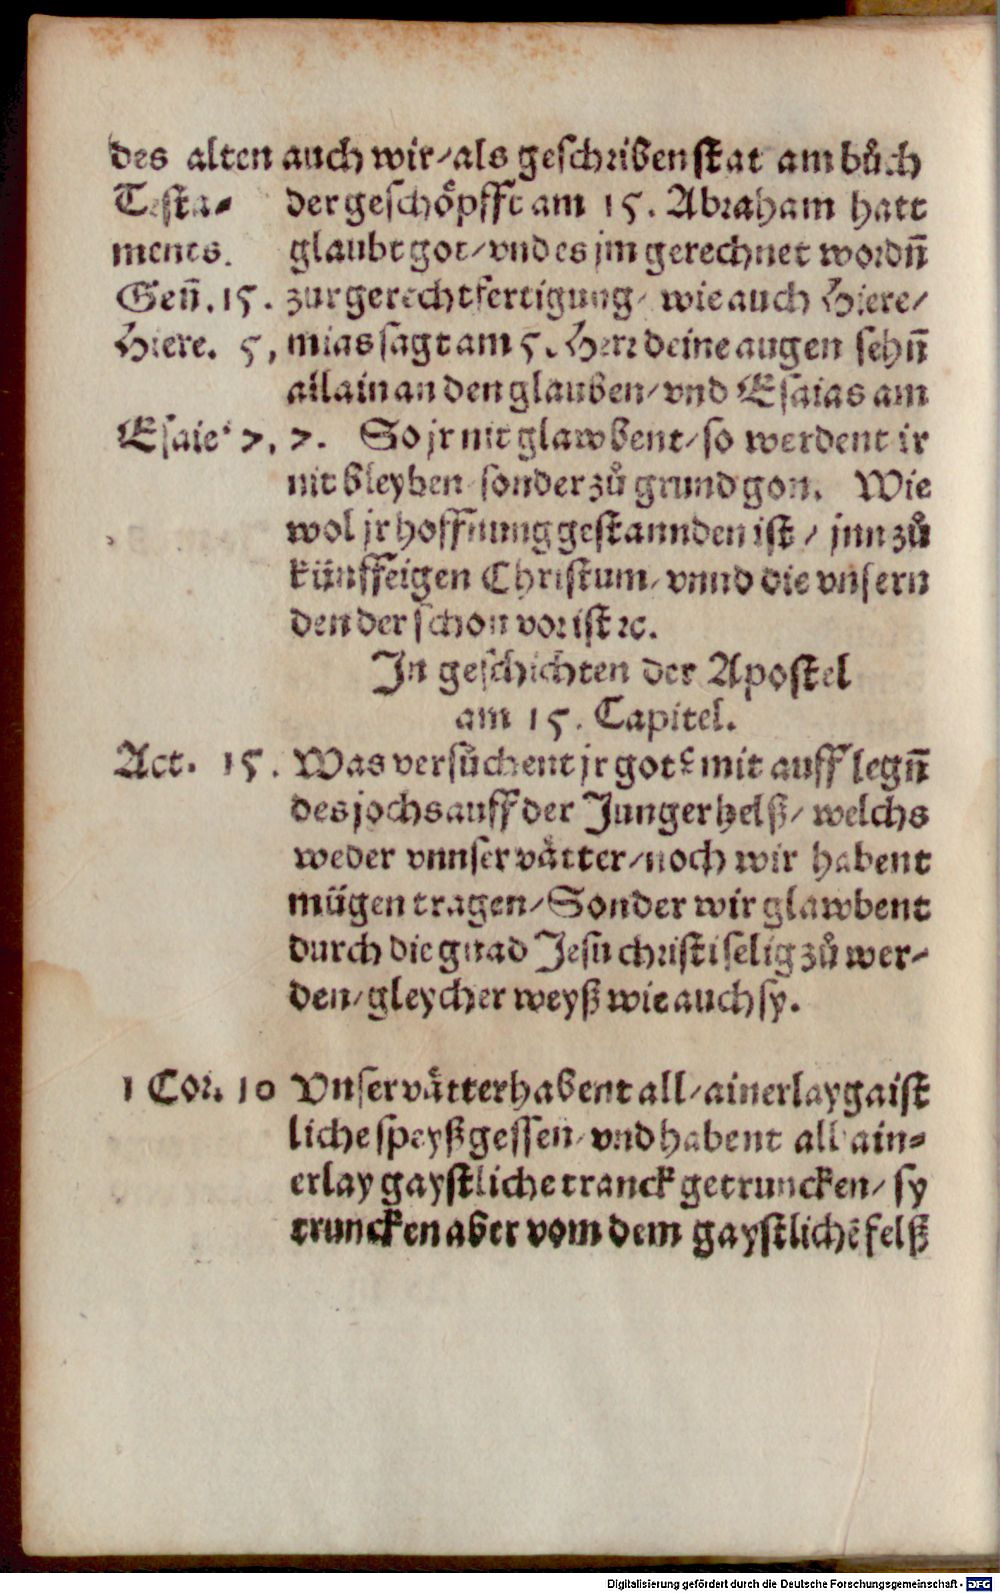 des alten auch wir/als geschriben stat am bůch
Testa= der geschöpfft am 15. Abraham hatt
ments. glaubt got/vnd es jm gerechnet wordn̄
Gen̄. 15. zur gerechtfertigung/ wie auch Hiere/
Hiere. 5, mias sagt am 5. Herr deine augen sehn̄
allain an den glauben/vnd Esaias am
Esaie 7, 7. So jr nit glawbent/so werdent ir
nit bleyben sonder zů grund gon. Wie
wol jr hoffnung gestannden ist / jnn zů
künfftigen Christum/vnnd die vnsern
den der schon vor ist ꝛc.
In geschichten der Apostel
am 15. Capitel.
Act. 15. Was versůchent jr got mit aufflegn̄
des jochs auff der Junger helß/ welchs
weder vnnser våtter/noch wir habent
mügen tragen/Sonder wir glawbent
durch die gnad Jesu christi selig zů wer/
den/gleycher weyß wie auch sy.
1 Cor. 10 Vnser våtter habent all/ainerlay gaist
liche speyß gessen/vnd habent all ain=
erlay gaystliche tranck getruncken/ sy
truncken aber vom dem gaystlichē felß
Digitalisierung gefördert durch die Deutsche Forschungsgemeinschaft - DFG